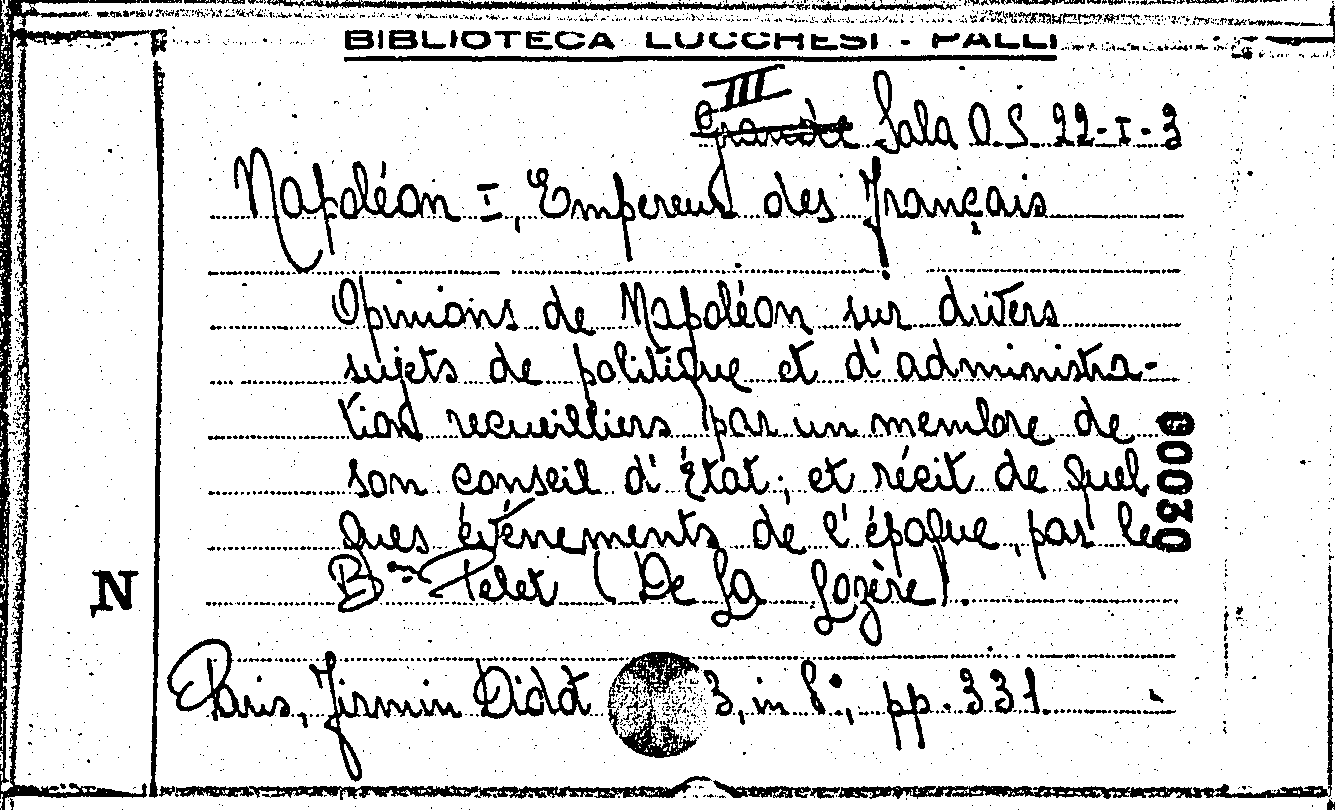 BIBLIOTECA LUCCHESI - PALLI
III
Grande Sala O.S. 22-I-3
Napoléon I, Empereur des Français
Opinions de Napoléon sur divers
sujets de politique et d'administra-
tion recueilliers par un membre de
son conseil d'État; et récit de quel
ques événements de l'époque, par le
Bon Pelet (De La Lozère).
00030
N
Paris, Firmin Didot 3, in 8°; pp. 331.